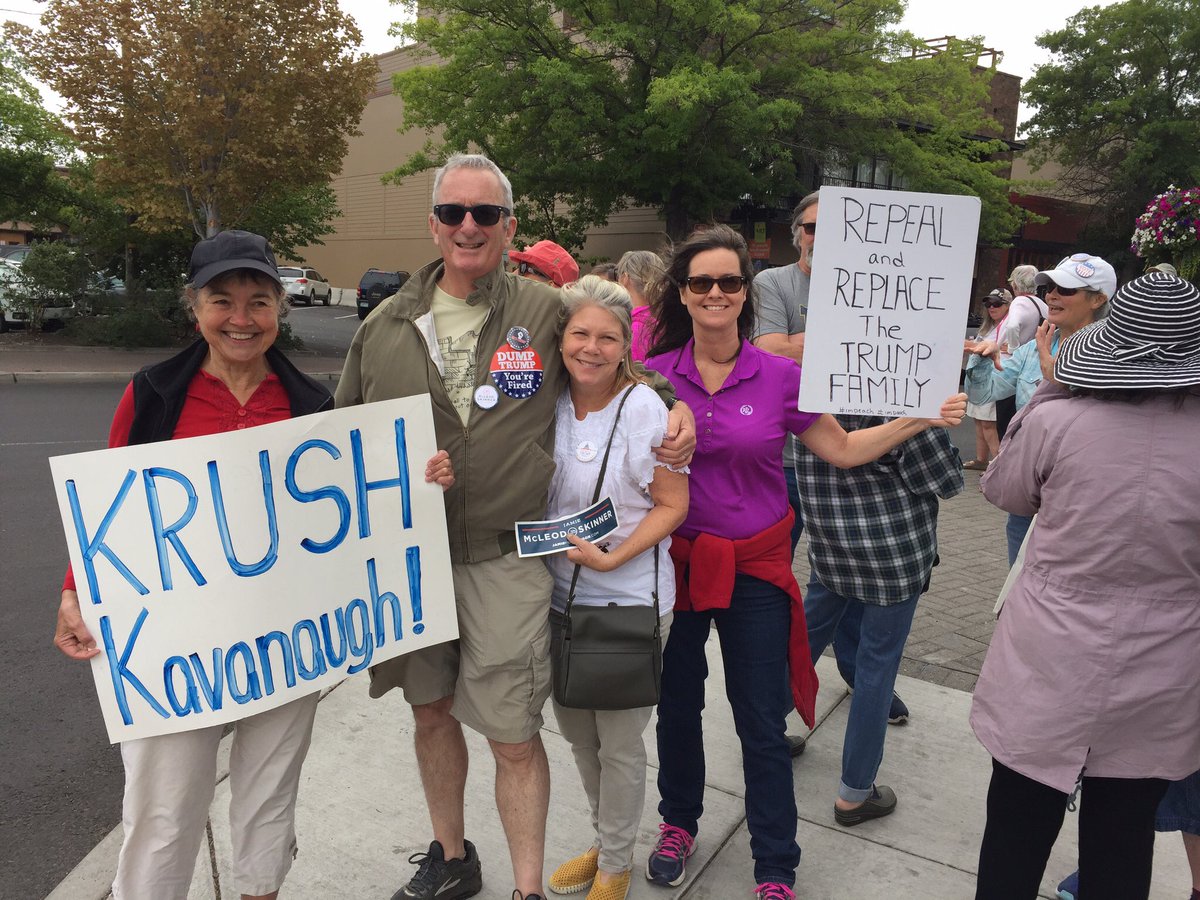 KRUSH
Kavanaugh!
DUMP TRUMP
You're
Fired
JAMIE
McLEOD SKINNER
REPEAL
and
REPLACE
The
TRUMP
FAMILY
#impeach #impeach